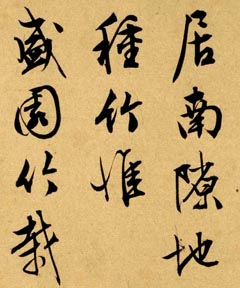 居南隙地
種竹惟
盛園竹栽